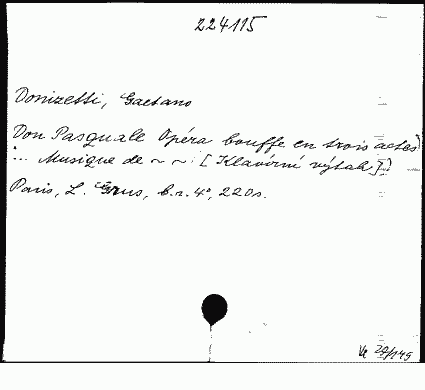 224115
Donizetti, Gaetano
Don Pasquale Opéra bouffe en trois actes
... Musique de ~ ~ : [Klavírní výtah]
Paris, L. Grus, b.r. 4°, 220 s.